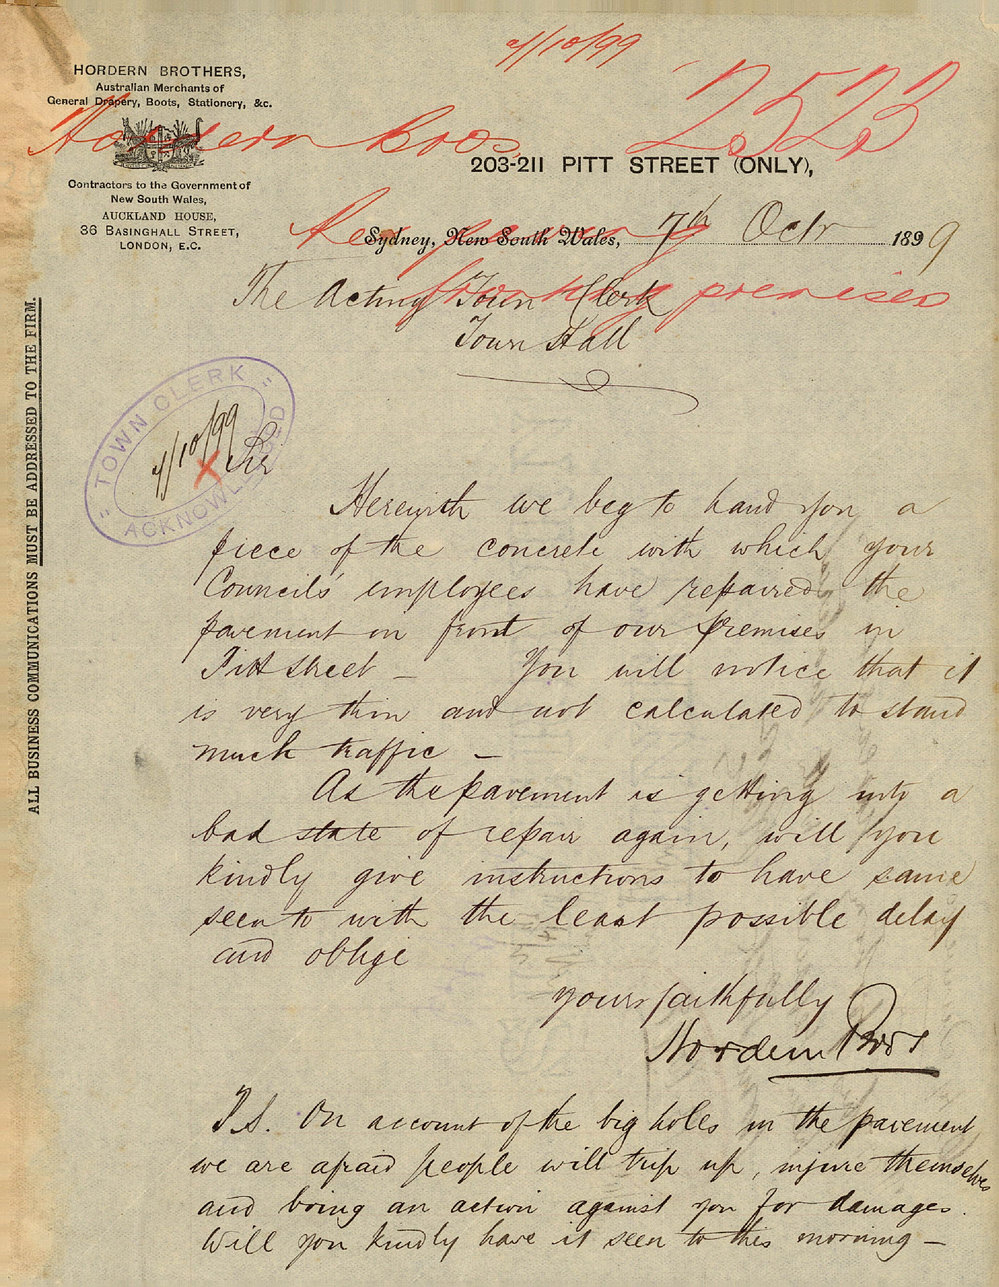 9/10/99
HORDERN BROTHERS,
Australian Merchants of
General Drapery, Boots, Stationery, &c.
Hordern Bros 2523
203-211 PITT STREET (ONLY),
Contractors to the Government of
New South Wales,
AUCKLAND HOUSE,
36 BASINGHALL STREET,
LONDON, E.C.
Re paving
Sydney, New South Wales, 7th Octr 1899
footway premises
The Acting Town Clerk
Town Hall
ALL BUSINESS COMMUNICATIONS MUST BE ADDRESSED TO THE FIRM.
"TOWN CLERK"
9/10/99
X
ACKNOWLEDGED
Sir
Herewith we beg to hand you a
piece of the concrete with which your
Council's employees have repaired the
pavement in front of our premises in
Pitt street — You will notice that it
is very thin and not calculated to stand
much traffic —
As the pavement is getting into a
bad state of repair again, will you
kindly give instructions to have same
seen to with the least possible delay
and oblige
yours faithfully
Hordern Bros
P.S. On account of the big holes in the pavement
we are afraid people will trip up, injure themselves
and bring an action against you for damages.
Will you kindly have it seen to this morning —